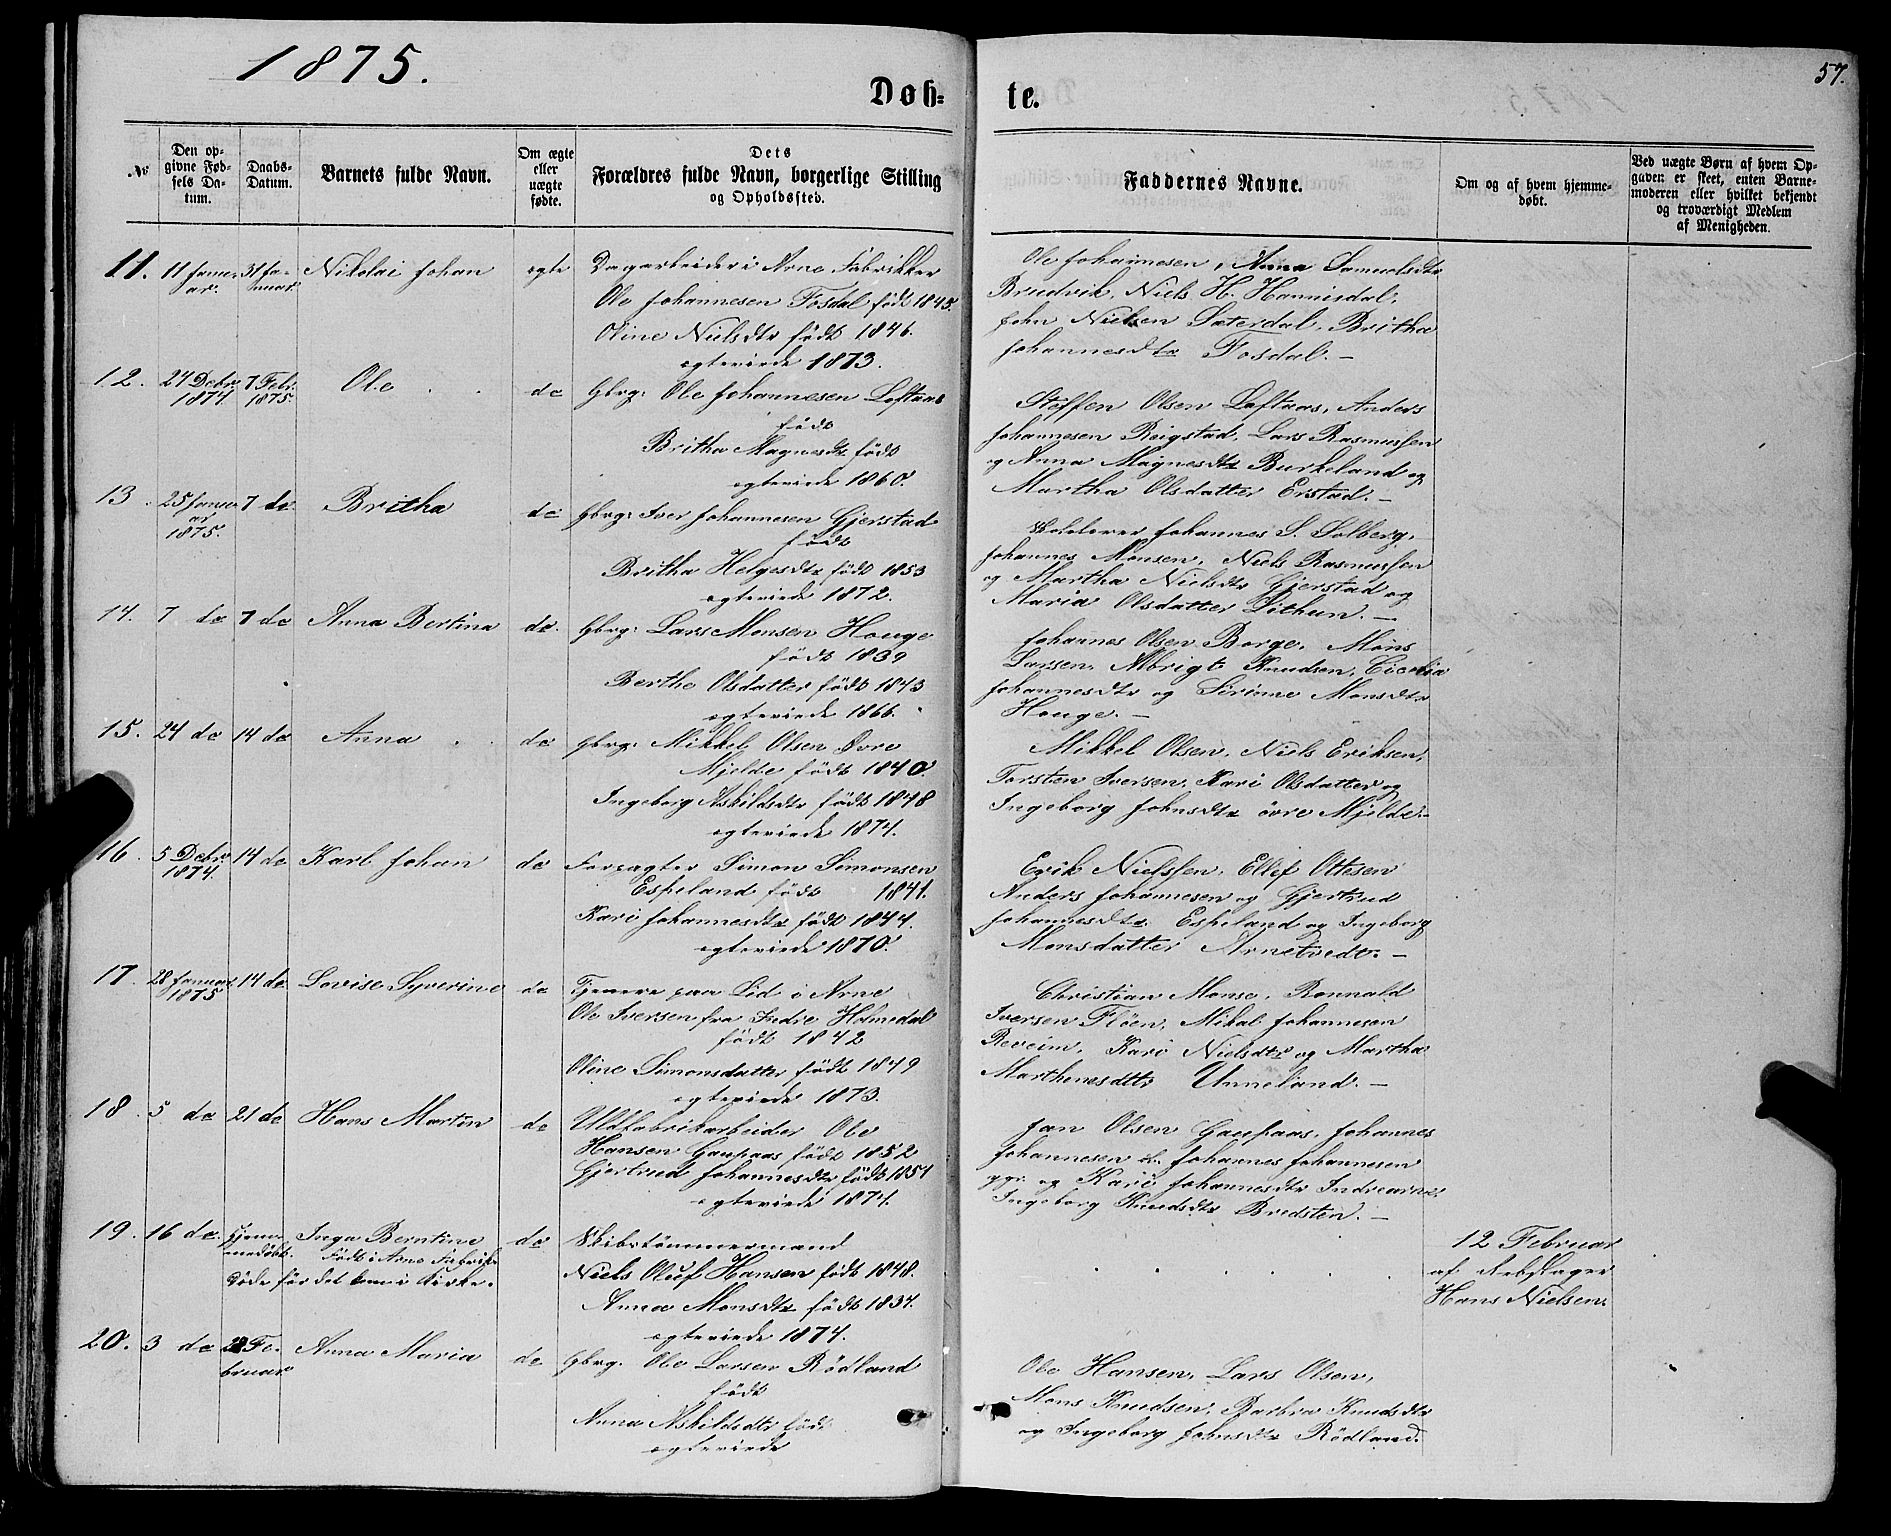 1875.
57.
Døb=
te.
№
Den op=
givne Fød=
sels Da=
tum.
Daabs=
Datum.
Barnets fulde Navn.
Om ægte
eller
uægte
fødte.
Dets
Forældres fulde Navn, borgerlige Stilling
og Opholdssted.
Faddernes Navne.
Om og af hvem hjemme=
døbt.
Ved uægte Børn af hvem Op=
gaven er skeet, enten Barne=
moderen eller hvilket bekjendt
og troværdigt Medlem
af Menigheden.
11. 11 Janu- 31 Ja- Nikolai Johan egte Dagarbeider i Arne Fabrikker
ar. nuar
Ole Johannesen Fosdal født 1845.
Oline Nielsdtr født 1846.
egteviede 1873.
Ole Johannesen, Anna Samuelsdtr
Brudvik, Niels H. Hannisdal,
John Nielsen Sæterdal, Britha
Johannesdtr Fosdal. –
12. 24 Debr. 7 Febr. Ole do Gbrg: Ole Johannesen Loftaas
1874. 1875.
født
Britha Magnesdtr født
egteviede 1860.
Steffen Olsen Loftaas, Anders
Johannesen Reigstad, Lars Rasmussen
og Anna Magnesdtr Burkeland og
Martha Olsdatter Erstad. –
13. 25 Janu- 7 do Britha do Gbrg: Iver Johannesen Gjerstad
ar
1875.
født
Britha Helgesdtr født 1853
egteviede 1872.
Johannes S. Solberg,
Johannes Monsen, Niels Rasmussen
og Martha Nielsdtr Gjerstad og
Maria Olsdatter Lithun. –
14. 7 do 7 do Anna Bertina do. Gbrg: Lars Monsen Houge
født 1839
Berthe Olsdatter født 1843
egteviede 1866.
Johannes Olsen Borge, Mons
Larsen, Albrigt Knudsen, Cicelia
Johannesdtr og Sirinne Monsdtr
Houge. –
15. 24 do 14 do Anna do Gbrg: Mikkel Olsen Øvre
Mjelde født 1840.
Ingeborg Askildsdtr født 1848
egteviede 1874.
Mikkel Olsen, Niels Eriksen,
Torsten Iversen, Kari Olsdatter og
Ingeborg Johnsdtr øvre Mjelde. –
16. 5 Debr 14 do Karl Johan do Forpagter Simon Simonsen
1874.
Espeland født 1841.
Kari Johannesdtr født 1844.
egteviede 1870.
Erik Nielssen, Ellef Ottesen
Anders Johannesen og Gjertrud
Johannesdtr Espeland og Ingeborg
Monsdatter Arnetvedt. –
17. 28 Januar 14 do Lovise Syverine do Tjenere paa Lid i Arne
1875
Ole Iversen fra Indre Holmedal
født 1842
Oline Simonsdatter født 1849
egteviede 1873.
Christian Monse, Ronnald
Iversen Fløen, Mikal Johannesen
Reveim, Kari Nielsdtr og Martha
Marthenesdttr Unneland. –
18. 5 do 21 do Hans Martin do Uldfabrikarbeider Ole
Hansen Gaupaas født 1852
Gjertrud Johannesdtr født 1851
egteviede 1874.
Jan Olsen Gaupaas, Johannes
Johannesen æ. Johannes Johannesen
ygr. og Kari Johannesdtr Indrearne
Ingeborg Knudsdtr Bredsten. –
19. 16 do. Hjem- Inga Berntine do Skibstømmermand
medøbt. Født i Arne Fabrik.
døde før det kom i Kirke.
Niels Oluf Hansen født 1848.
Anna Monsdtr født 1837.
egteviede 1874.
12 Februar
af Rebslager
Hans Nielsen.
20. 3 do 28 Fe- Anna Maria do Gbrg. Ole Larsen Rødland
bruar
født
Anna Askildsdtr født
egteviede
Ole Hansen, Lars Olsen,
Mons Knudsen, Barbra Knudsdtr
og Ingeborg Johnsdtr Rødland.